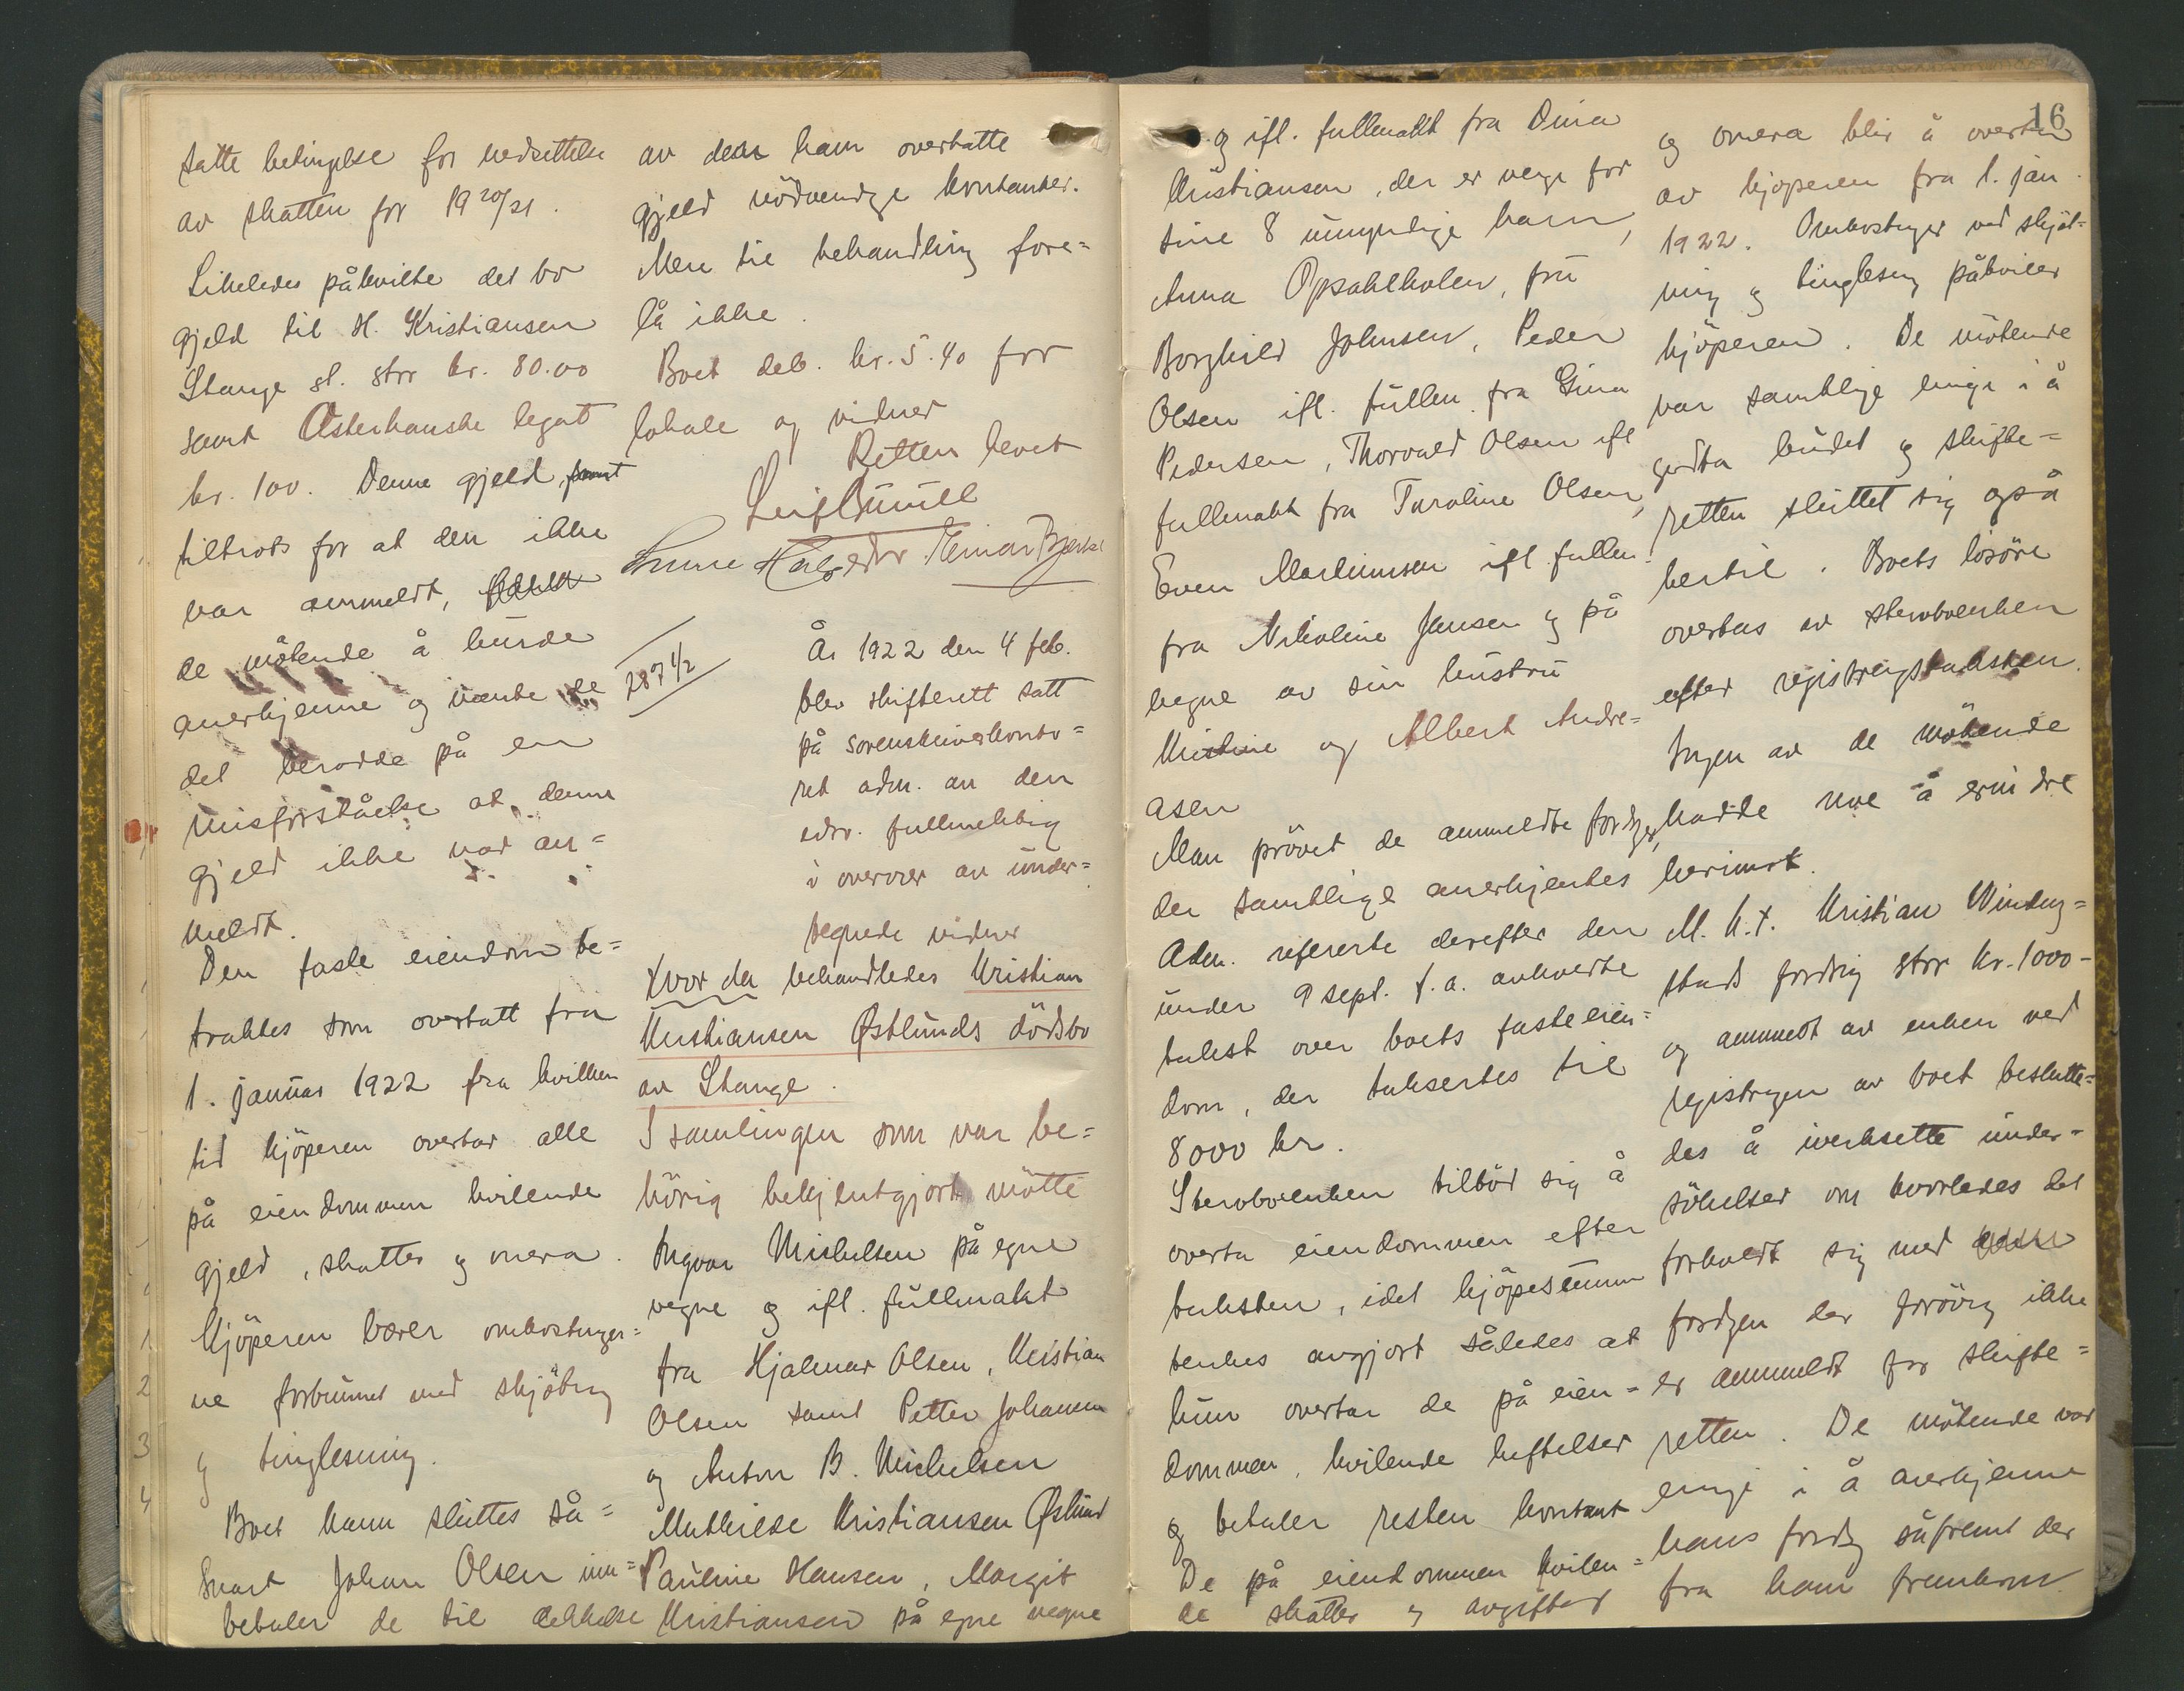 satte betingelse for nedsettelse
av skatten for 19 20/21.
Likeledes påhvilte det bo
gjeld til H. Kristiansen
Stange st. stor kr. 80.00
samt Asterhanske legat
kr. 100. Denne gjeld
tiltrods for at den ikke
var anmeldt,
de møtende å burde
anerkjenne og mente de
det berodde på en
misforståelse at denne
gjeld ikke var an=
meldt.
Den faste eiendom be=
traktes som overtatt fra
1. januar 1922 fra hvilken
tid kjöperen overtar alle
på eiendommen hvilende
gjeld, skatter og onera.
Kjöperen bærer omkostninger=
ne forbunnet med skjöting
og tinglesning.
Boet kann sluttes så=
snart Johan Olsen inn=
betaler de til dekkelse
av den ham overtatte
gjeld nödvendige kontanter.
Mere til behandling fore=
lå ikke.
Boet deb. kr. 5.40 for
lokale og vidner
Retten hevet
Einar
287 1/2
År 1922 den 4 feb.
blev skifterett satt
på sorenskriverkonto=
ret adm. av den
edsv. fullmektig
i overvær av under=
tegnede vidner
Hvor da behandledes Kristian
Kristiansen Østlunds dödsbo
av Stange.
I samlingen som var be=
hörig bekjentgjort mötte
Ingvar Mickelsen på egne
vegne og ifl. fullmakt
fra Hjalmar Olsen, Kristian
Olsen samt Petter Johansen
og Anton B. Mickelsen
Mathilde Kristiansen Østlund
Pauline Hansen, Margit
Kristiansen på egne vegne
og ifl. fullmakt fra Dina
Kristiansen, der er verge for
sine 8 umyndige barn,
Anna Opsahlholen, fru
Borghild Johnsen, Peder
Olsen ifl. fullm. fra Gina
Pedersen, Thorvald Olsen ifl
fullmakt fra Karoline Olsen,
Even Martinusen ifl. fullm.
fra Nikoline Jansen og på
vegne av sin hustru
Kristine og Albert Andre=
asen
Man prövet de anmeldte fordringer,
der samtlige anerkjentes
Adm. refererte derefter den
under 9 sept. f.a. avholdte
takst over boets faste eien=
dom, der takseertes til
8000 kr.
Stervboenken tilböd sig å
overta eiendommen efter
taksten, idet kjöpesummen
tenkes avgjort således at
hun overtar de på eien=
dommen hvilende heftelser
og betaler resten kontant
De på eiendommen hvilen=
de skatter og avgifter
16
og onera blir å overta
av kjöperen fra 1. jan.
1922. Omkostninger ved skjöt=
ning og tinglesning påhviler
kjöperen. De mötende
var samtlige enige i å
godta budet og skifte=
retten sluttet sig også
hertil. Boets lösöre
overtas av stervboenken
efter registreringstaksten.
Ingen av de mötende
hadde noe å erindre
herimot.
M. h. t. Kristian Winding=
stads fordring stor kr. 1000-
og anmeldt av enken ved
registringen av boet beslutte=
des å iverksette under=
sökelser om hvorledes det
forholdt sig med
fordringen der forövrig ikke
er anmeldt for skifte=
retten. De mötende var
enige i å anerkjenne
hans fordring såfremt der
fra ham fremkom
1
2
3
4